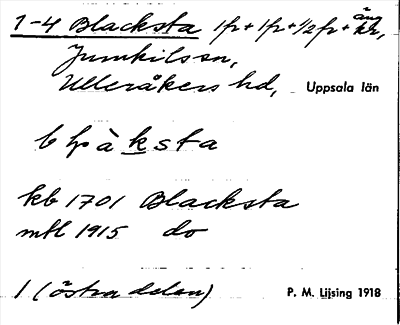 1-4 Blacksta 1fr + 1fr + 1/2 fr + äng kr,
Jumkils sn,
Ulleråkers hd, Uppsala län
kb 1701 Blacksta
mtl 1915 do
1 (östra delen) P. M. Lijsing 1918